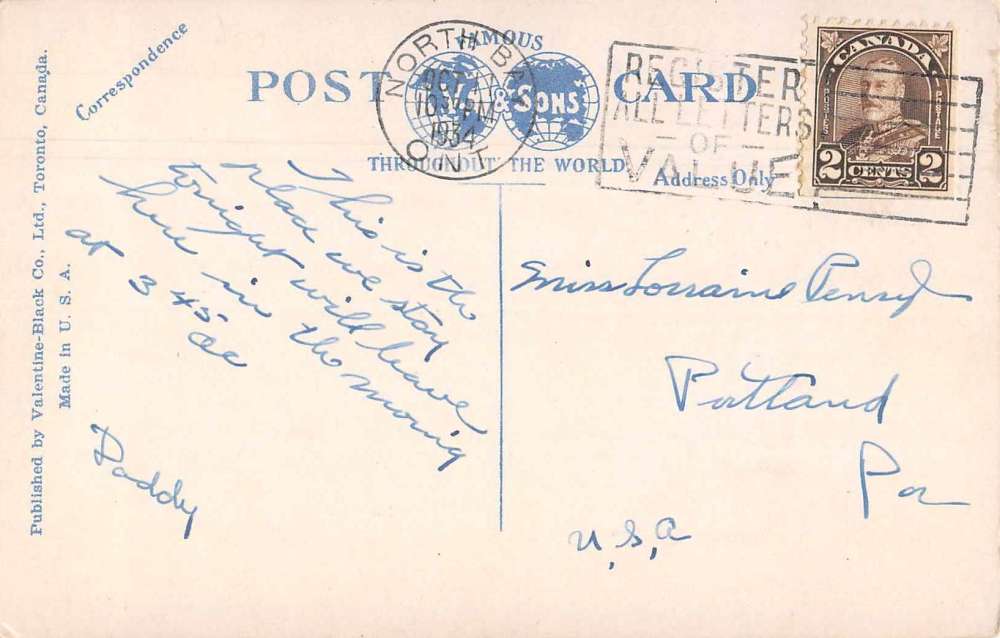 Published by Valentine-Black Co., Ltd., Toronto, Canada.
Made in U. S. A.
Correspondence
POST CARD
FAMOUS
& SONS
THROUGHOUT THE WORLD
Address Only
NORTH BAY
OCT
10 PM
1934
ONT
REGISTER
ALL LETTERS
- OF -
VALUE
CANADA
POSTES POSTAGE
2 CENTS 2
This is the
place we stay
tonight will leave
here in the moring
at 3 45
Daddy
Miss Lorraine
Portland
Pa
U.S.A